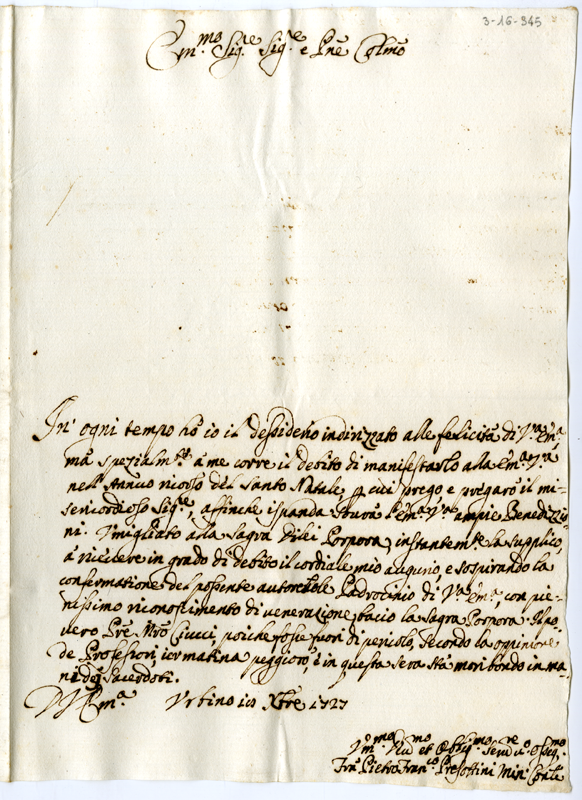 3-16-345
Em.mo Sig.re Sig.re e Pne Colmo
In' ogni tempo hò io il dessiderio indirizzato alle felicità di V.ra Em.a
mà spezialm.te à me corre il debito di manifestarlo alla Em.a V.ra
nell' Annuo ricorso del Santo Natale, p cui prego e pregarò il mi-
sericordioso Sig.re, affinche ispanda sovra l'Em.a V.ra ampie Benedizzio
ni. Vmigliato alla sagra Porpora, instantem.te la supplico
à ricevere in grado di debito il cordiale mio augurio, e sospirando la
confermatione del possente autorebole Padrocinio di V.ra Em.a, con pie-
nissimo riconoscimento di veneratione, bacio la sagra Porpora. Il po
vero Pre Mro Ciucci, poiche fosse fuori di pericolo, secondo la oppinione
de Professori, iermatina peggiorò, e in questa sera stà moribondo in ma-
ni de Sacerdoti.
D V Em.a Vrbino Xbre 1727
Vm.mo et Obblig.mo Serv.re
Fra Pietro Fran.co Min: Con.le